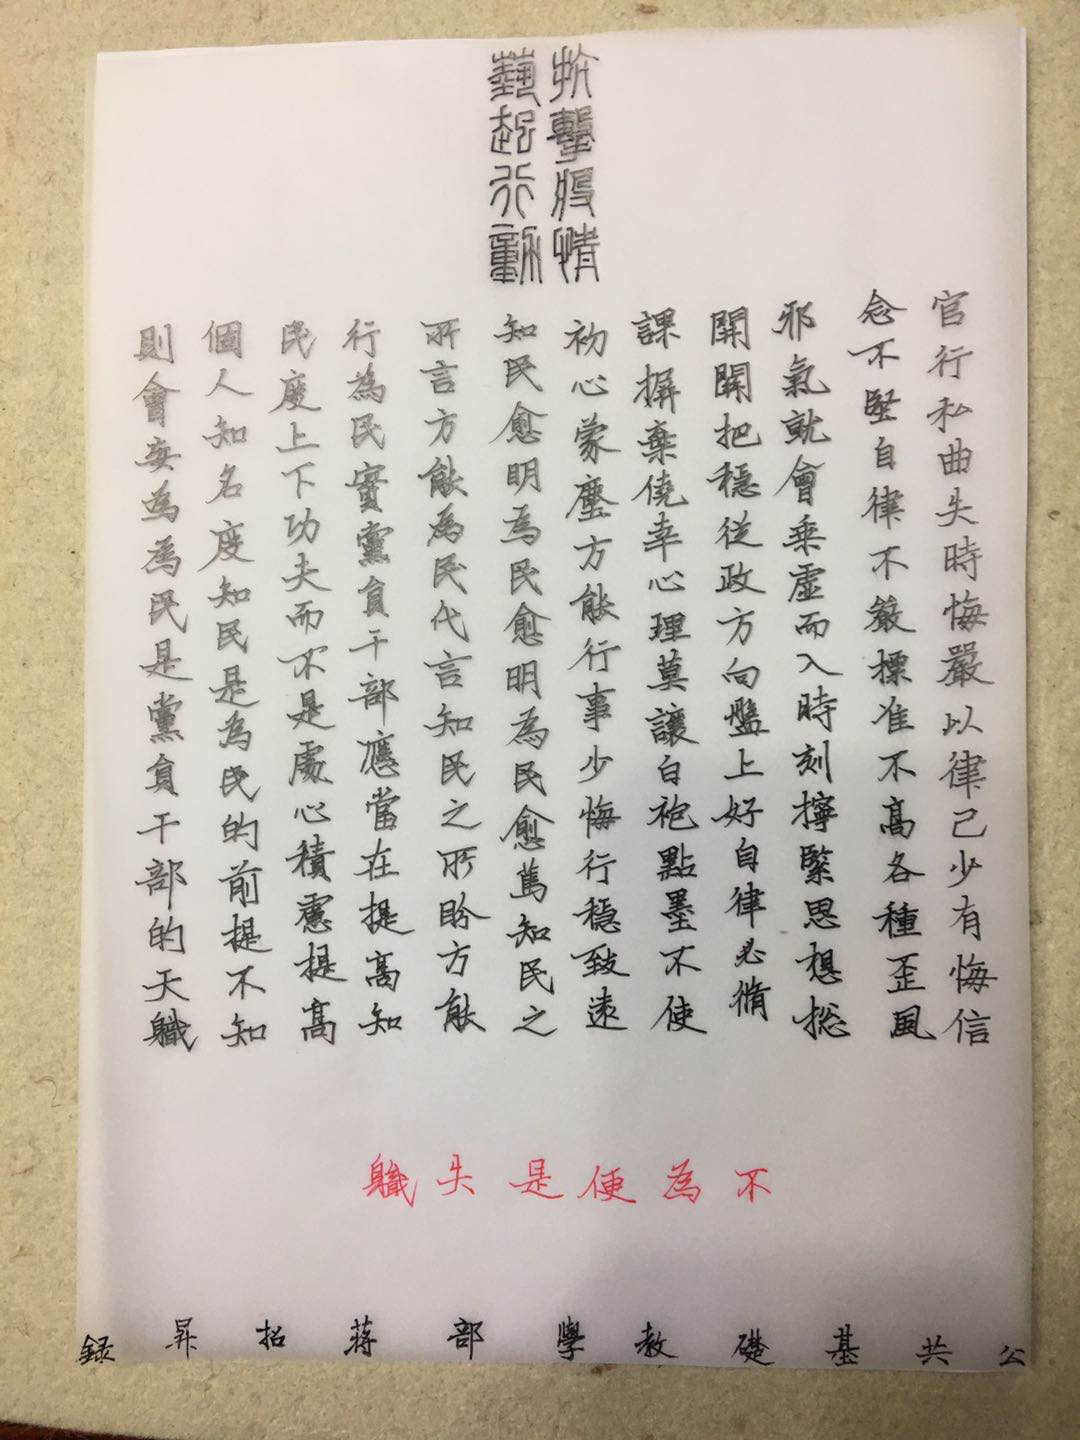 抗擊疫情
藝起行動
官行私曲失時悔嚴以律己少有悔信
念不堅自律不嚴標准不高各種歪風
邪氣就會乘虛而入時刻擰緊思想総
開關把穩從政方向盤上好自律必脩
課摒棄僥幸心理莫讓白袍點墨不使
初心蒙塵方能行事少悔行穩致遠
知民愈明為民愈明為民愈篤知民之
所言方能為民代言知民之所盼方能
行為民實黨員干部應當在提高知
民度上下功夫而不是處心積慮提高
個人知名度知民是為民的前提不知
則會妄為為民是黨員干部的天職
不為便是失職
公共基礎教學部蔣招昇録